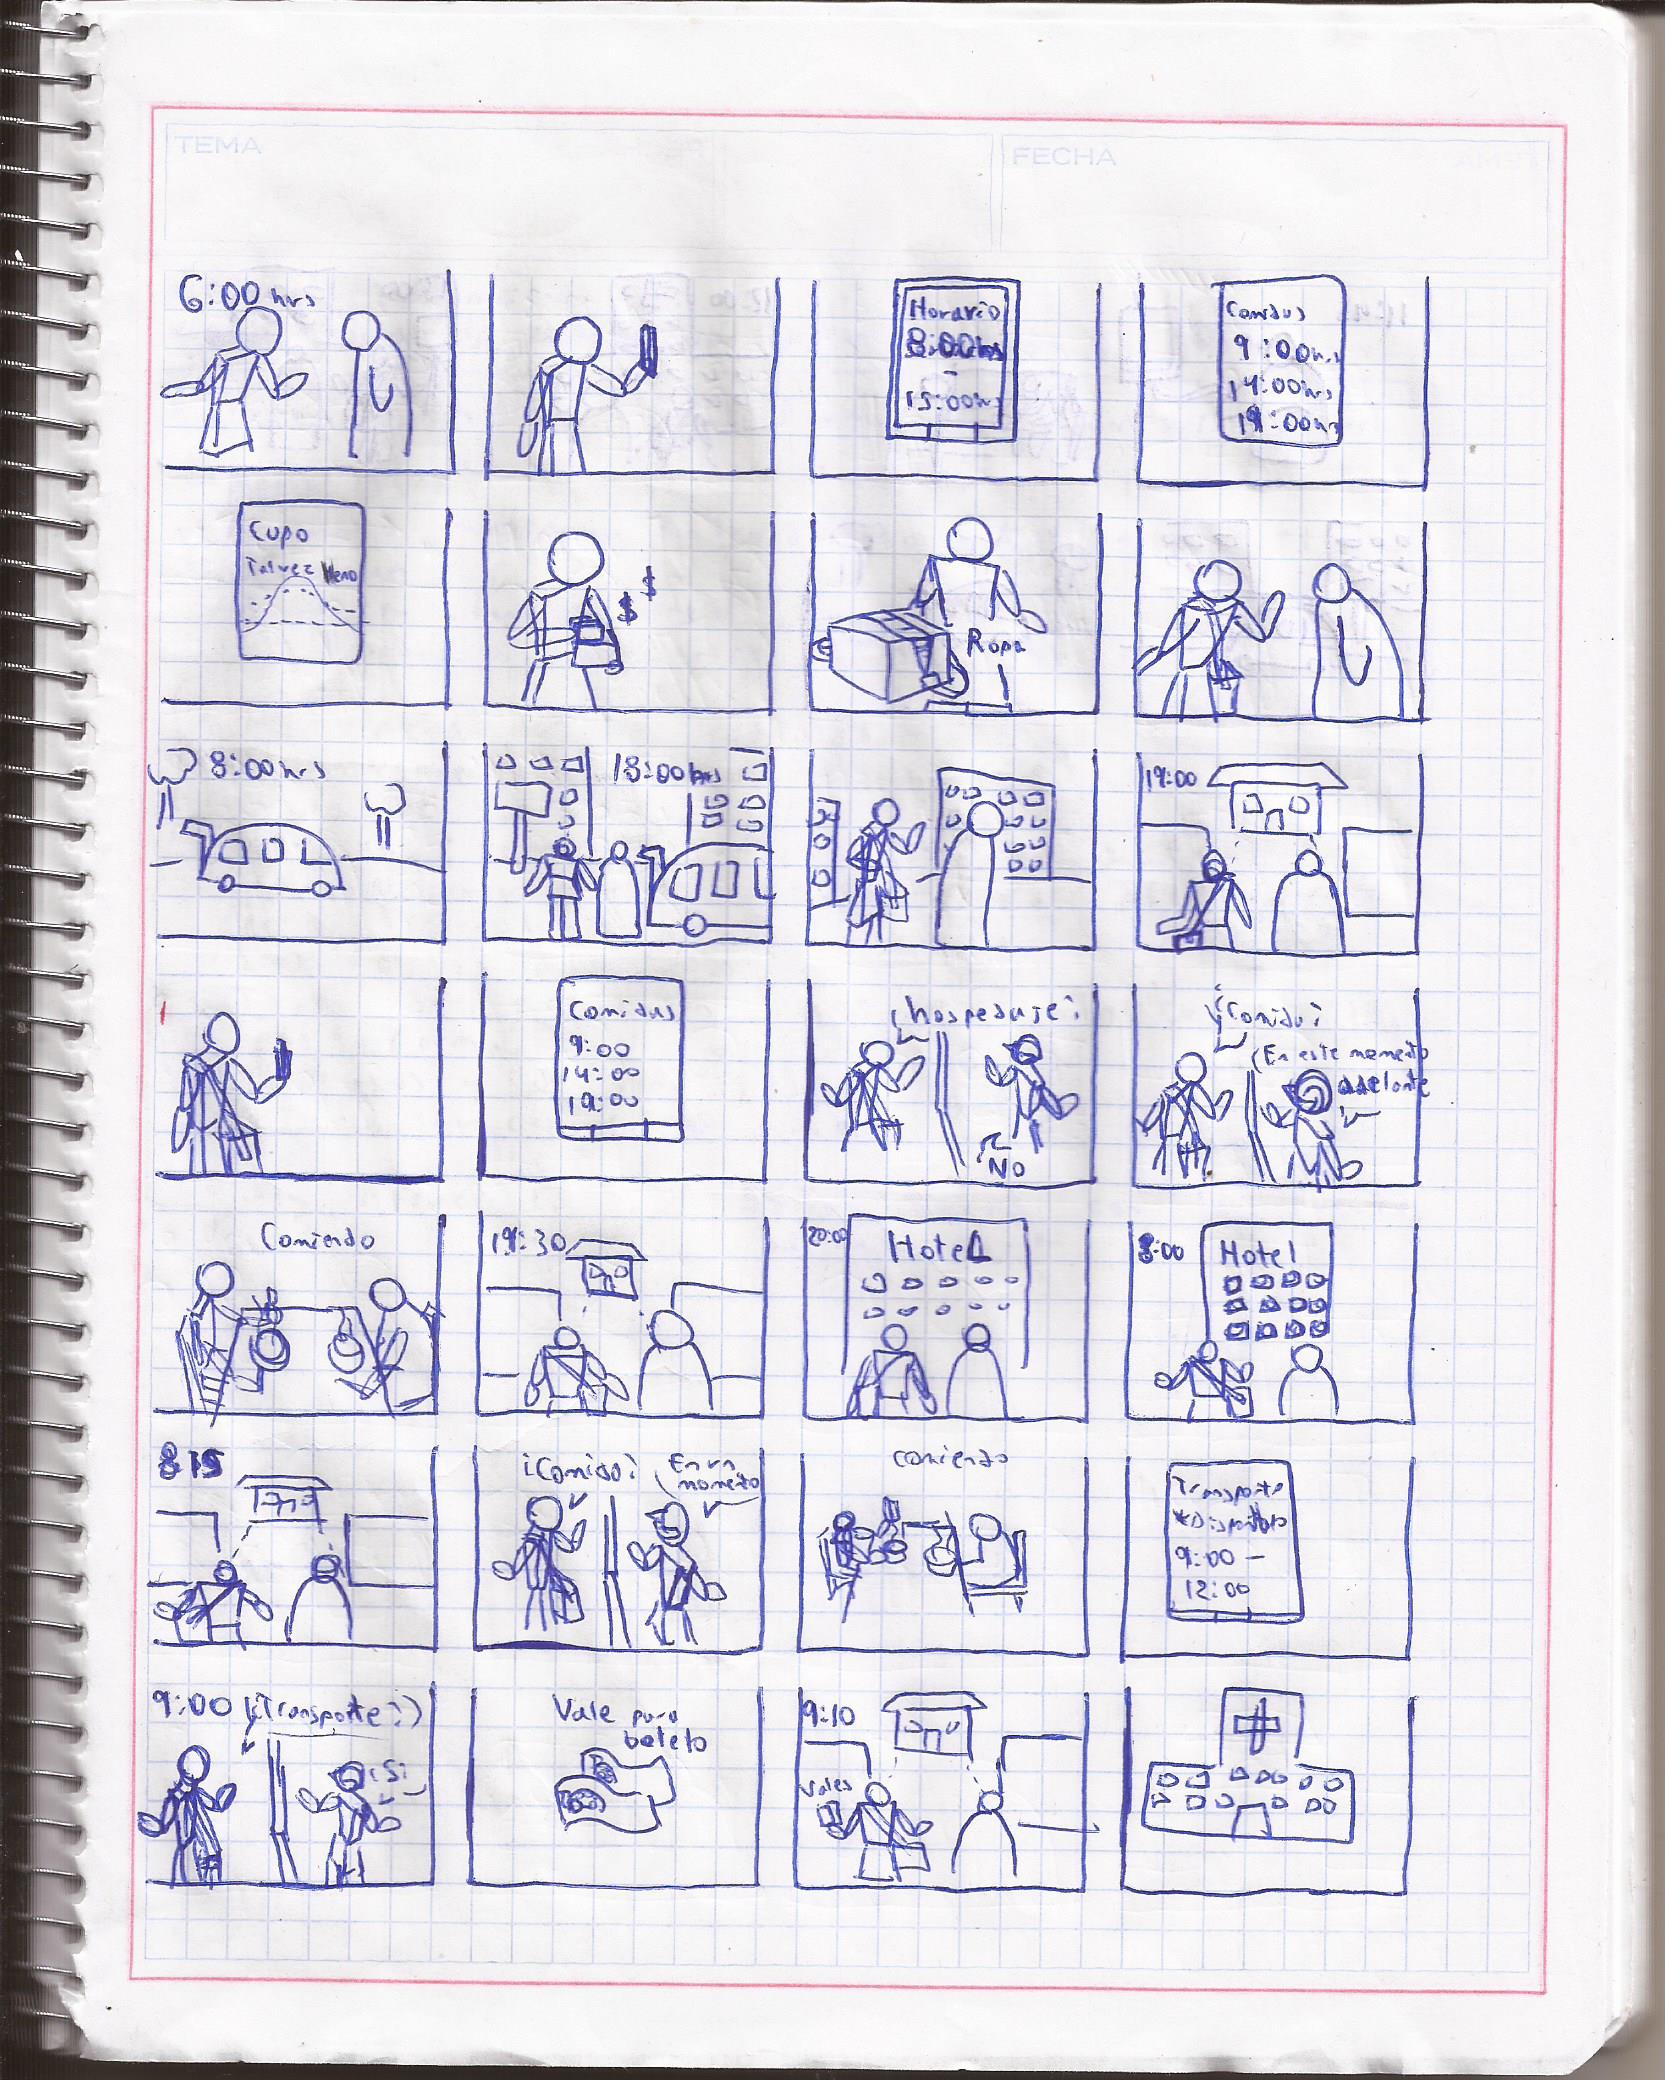 TEMA
FECHA
6:00 hrs
Horario
8:00hrs
-
15:00hrs
Comidas
9:00hrs
14:00hrs
19:00hrs
Cupo
Talvez lleno
$ $
Ropa
8:00hrs
18:00hrs
19:00
Comidas
9:00
14:00
19:00
¿hospedaje?
NO
¿Comida?
En este momento
adelante
Comiendo
19:30
20:00
Hotel
8:00
Hotel
8:15
¿Comida?
En un
momento
comiendo
Transporte
9:00 -
12:00
9:00 ¿Transporte?
Si
Vale para
boleto
9:10
Vales